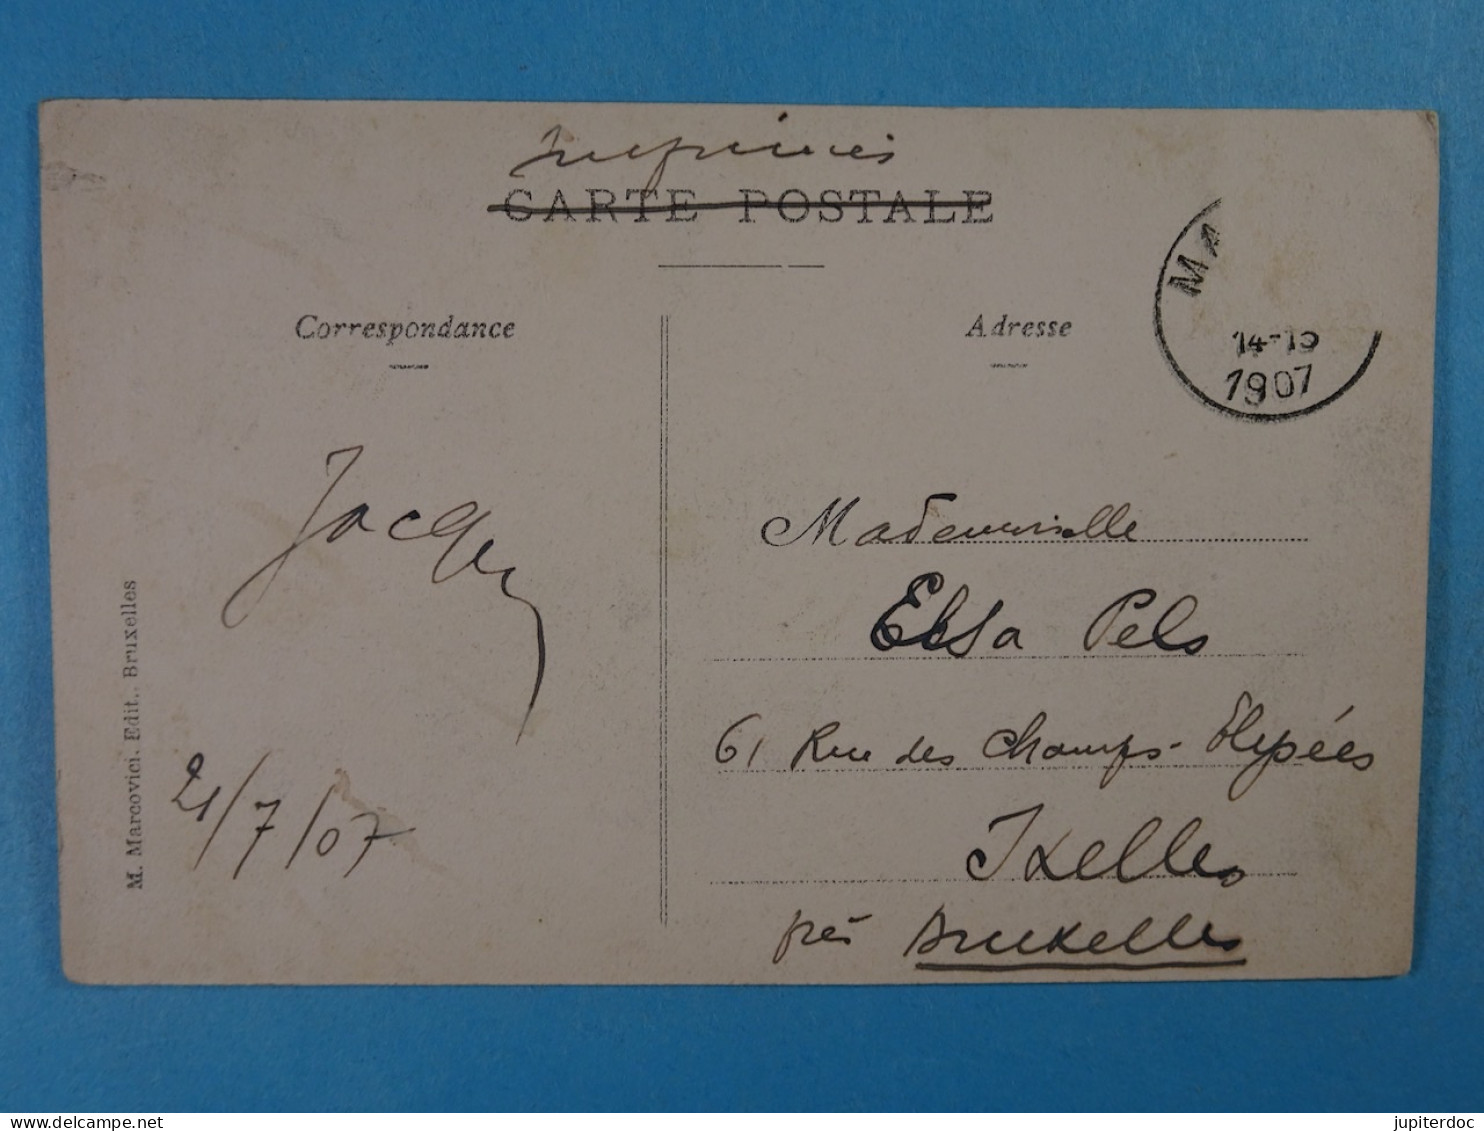 Imprimés
CARTE POSTALE
MA
14-15
1907
Correspondance
Adresse
Jacq
21/7/07
M. Marcovici, Edit., Bruxelles
Mademoiselle
Elsa Pels
61 Rue des Champs-Elysées
Ixelles
près Bruxelles
jupiterdoc
delcampe.net